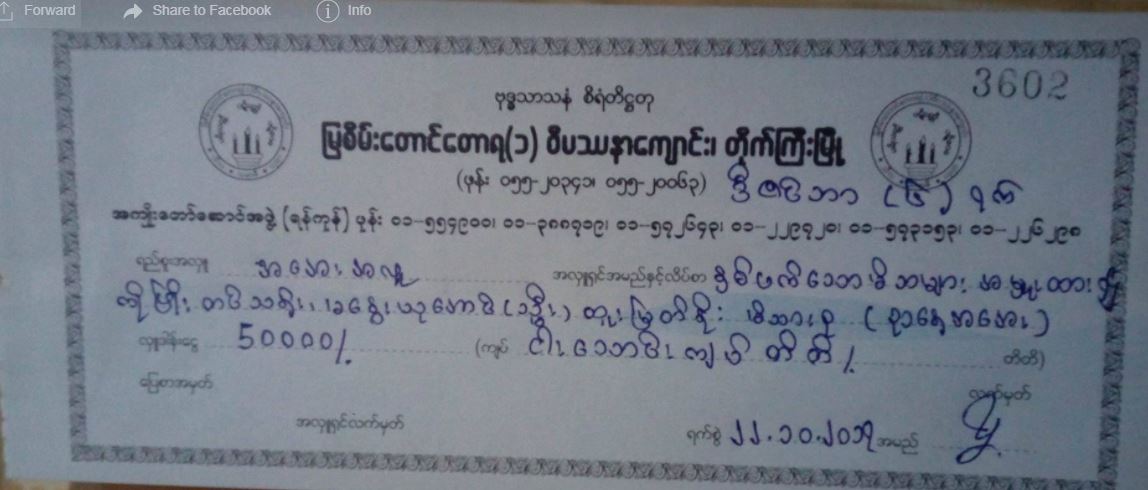 Forward Share to Facebook Info
3602
ဗုဒ္ဓသာသနံ စိရံတိဋ္ဌတု
မြစိမ်းတောင်တောရ(၁) ဝိပဿနာကျောင်း၊ တိုက်ကြီးမြို့
(ဖုန်း ၀၅၅-၂၀၃၄၁၊ ၀၅၅-၂၀၀၆၃) ဒီဇင်ဘာ (၆) ရက်
အကျိုးတော်ဆောင်အဖွဲ့ (ရန်ကုန်) ဖုန်း ၀၁-၅၅၄၉၀၀၊ ၀၁-၃၈၈၇၁၉၊ ၀၁-၅၇၂၆၄၃၊ ၀၁-၂၂၉၇၂၀၊ ၀၁-၅၇၃၁၅၃၊ ၀၁-၂၂၆၂၉၈
ရည်စူးအလှူ အအေးအလှူ အလှူရှင်အမည်နှင့်လိပ်စာ နှစ်ဖက်သောမိဘများ
ကိုမြိုး မိသားစု
လှူဒါန်းငွေ 50000/. (ကျပ် ငါးသောင်းကျပ်တိတိ/. တိတိ)
ပြေစာအမှတ် လက်မှတ်
အလှူရှင်လက်မှတ် ရက်စွဲ ၂၂.၁၀.၂၀၁၇ အမည်